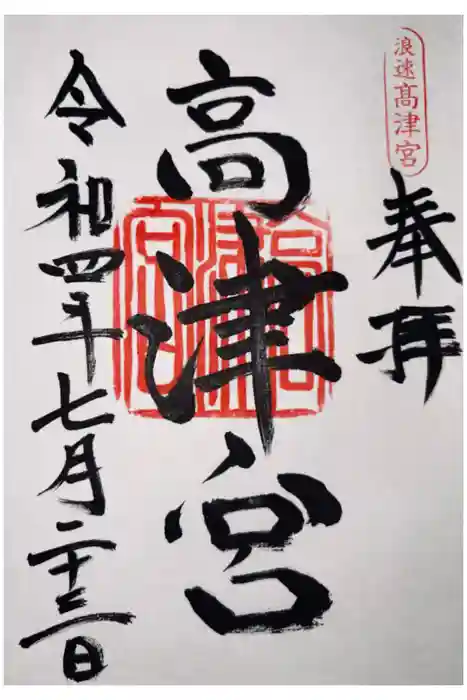 浪速髙津宮
奉拝
高津宮
高津宮
令和四年七月二十三日